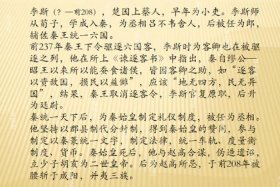 李斯（？—前208），楚国上蔡人，早年为小吏。李斯师
从荀子，学成入秦，为丞相吕不韦舍人，后被任为郎，
辅佐秦王统一六国。
前237年秦王下令驱逐六国客，李斯时为客卿也在被驱
逐之列，他在所上《谏逐客书》中指出，秦自缪公——
昭王以来所以能奋金诸侯，皆因客卿之助，如“逐客
以资敌国，损民以益雠”，应“地无四方，民无异
国”，结果，秦王取消逐客令，李斯官复原职，后升
为廷尉。
秦统一天下后，为秦始皇制定礼仪制度，被任为丞相。
他坚持以郡县制代分封制，得到秦始皇的赞同，参与
制定以秦篆统一文字，制定法律，统一车轨、度量衡
制度、货币。秦始皇死后，他与赵高合谋，伪造遗诏，
立少子胡亥为二世皇帝。后为赵高所忌，于前208年被
腰斩于咸阳，并夷三族。